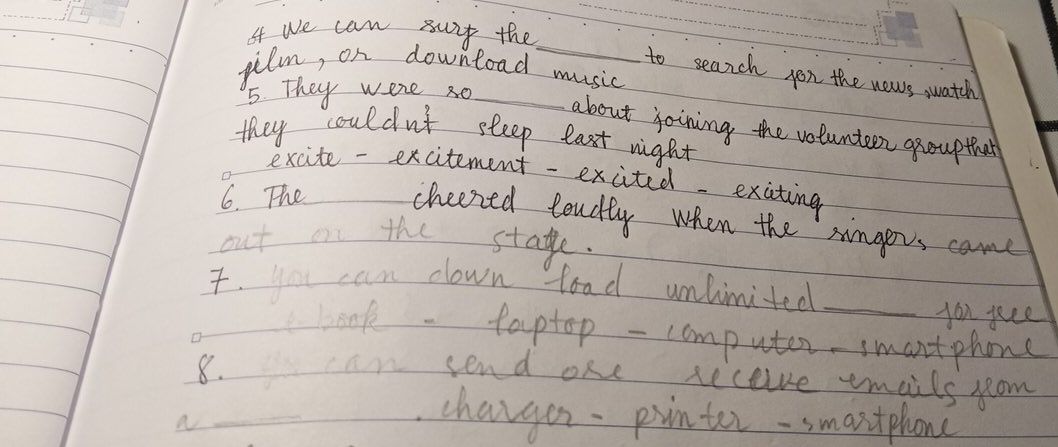 4 We can surf the ______ to search for the news, watch
film, or download music
5 They were so ______ about joining the volunteer group that
they couldn't sleep last night
excite - excitement - excited - exciting
6. The ______ cheered loudly when the singers came
out on the stage.
7. You can down load unlimited ______ for free
e-book - laptop - computer - smartphone
8. You can send ore receive emails from
a ______ . charger - printer - smartphone